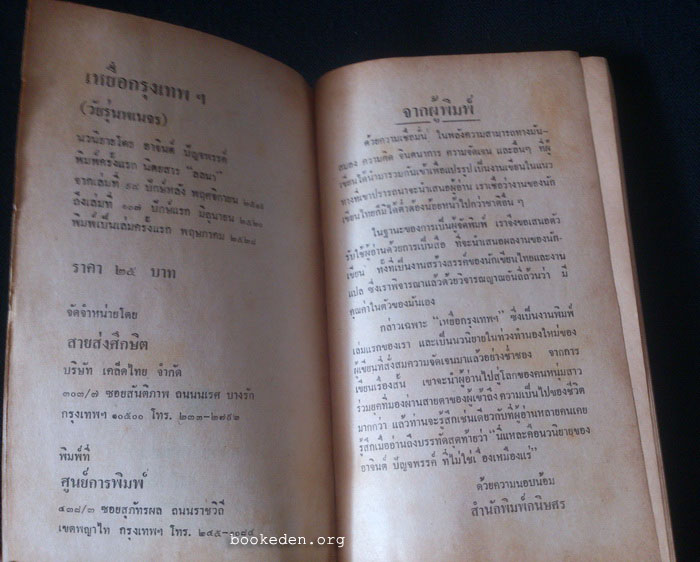 เหยื่อกรุงเทพ ฯ
(วัยรุ่นกลเนจร)
นวนิยายโดย อาจินต์ ปัญจพรรค์
พิมพ์ครั้งแรก นิตยสาร "ลลนา"
จากเล่มที่ ๙๙ ปักษ์หลัง พฤศจิกายน
ถึงเล่มที่ ๑๓๗ ปักษ์แรก มิถุนายน ๒๕๒๐
พิมพ์เป็นเล่มครั้งแรก พฤษภาคม ๒๕๒๔
ราคา ๒๕ บาท
จัดจำหน่ายโดย
สายส่งศึกษิต
บริษัท เคล็ดไทย จำกัด
๓๐๓/๗ ซอยสันติภาพ ถนนนเรศ บางรัก
กรุงเทพฯ ๑๐๕๐๐ โทร. ๒๓๓-๒๗๙๖
พิมพ์ที่
ศูนย์การพิมพ์
๔๓๘/๓ ซอยสุภัทรผล ถนนราชวิถี
เขตพญาไท กรุงเทพฯ โทร.
จากผู้พิมพ์
ด้วยความเชื่อมั่น ในพลังความสามารถทางมัน-
สมอง ความคิด จินตนาการ ความจัดเจน และอื่นๆ ที่ผู้
เขียนได้นำมารวมกันเข้าเพื่อแปรรูป เป็นงานเขียนในแนว
ทางที่เขาปรารถนาจะนำเสนอผู้อ่าน เราเชื่อว่างานของนัก
เขียนไทยก็มิได้ต่ำต้องน้อยหน้าไปกว่าชาติอื่น ๆ
ในฐานะของการเป็นผู้จัดพิมพ์ เราจึงขอเสนอตัว
รับใช้ผู้อ่านด้วยการเป็นสื่อ ที่จะนำเสนอผลงานของนัก-
เขียน ทั้งที่เป็นงานสร้างสรรค์ของนักเขียนไทยและงาน
แปล ซึ่งเราพิจารณาแล้วด้วยวิจารณญาณอันถี่ถ้วนว่า มี
คุณค่าในตัวของมันเอง
กล่าวเฉพาะ "เหยื่อกรุงเทพฯ" ซึ่งเป็นงานพิมพ์
เล่มแรกของเรา และเป็นนวนิยายในท่วงทำนองใหม่ของ
ผู้เขียนที่สั่งสมความจัดเจนมาแล้วอย่างช่ำชอง จากการ
เขียนเรื่องสั้น เขาจะนำผู้อ่านไปสู่โลกของคนหนุ่มสาว
ร่วมยุคที่มองผ่านสายตาของผู้เข้าถึงความเป็นไปของชีวิต
มากกว่า แล้วท่านจะรู้สึกเช่นเดียวกับที่ผู้อ่านหลายคนเคย
รู้สึกเมื่ออ่านถึงบรรทัดสุดท้ายว่า "นี่แหละคือนวนิยายของ
อาจินต์ ปัญจพรรค์ ที่ไม่ใช่เรื่องเหมืองแร่"
ด้วยความนอบน้อม
สำนักพิมพ์กนิษศร
bookeden.org